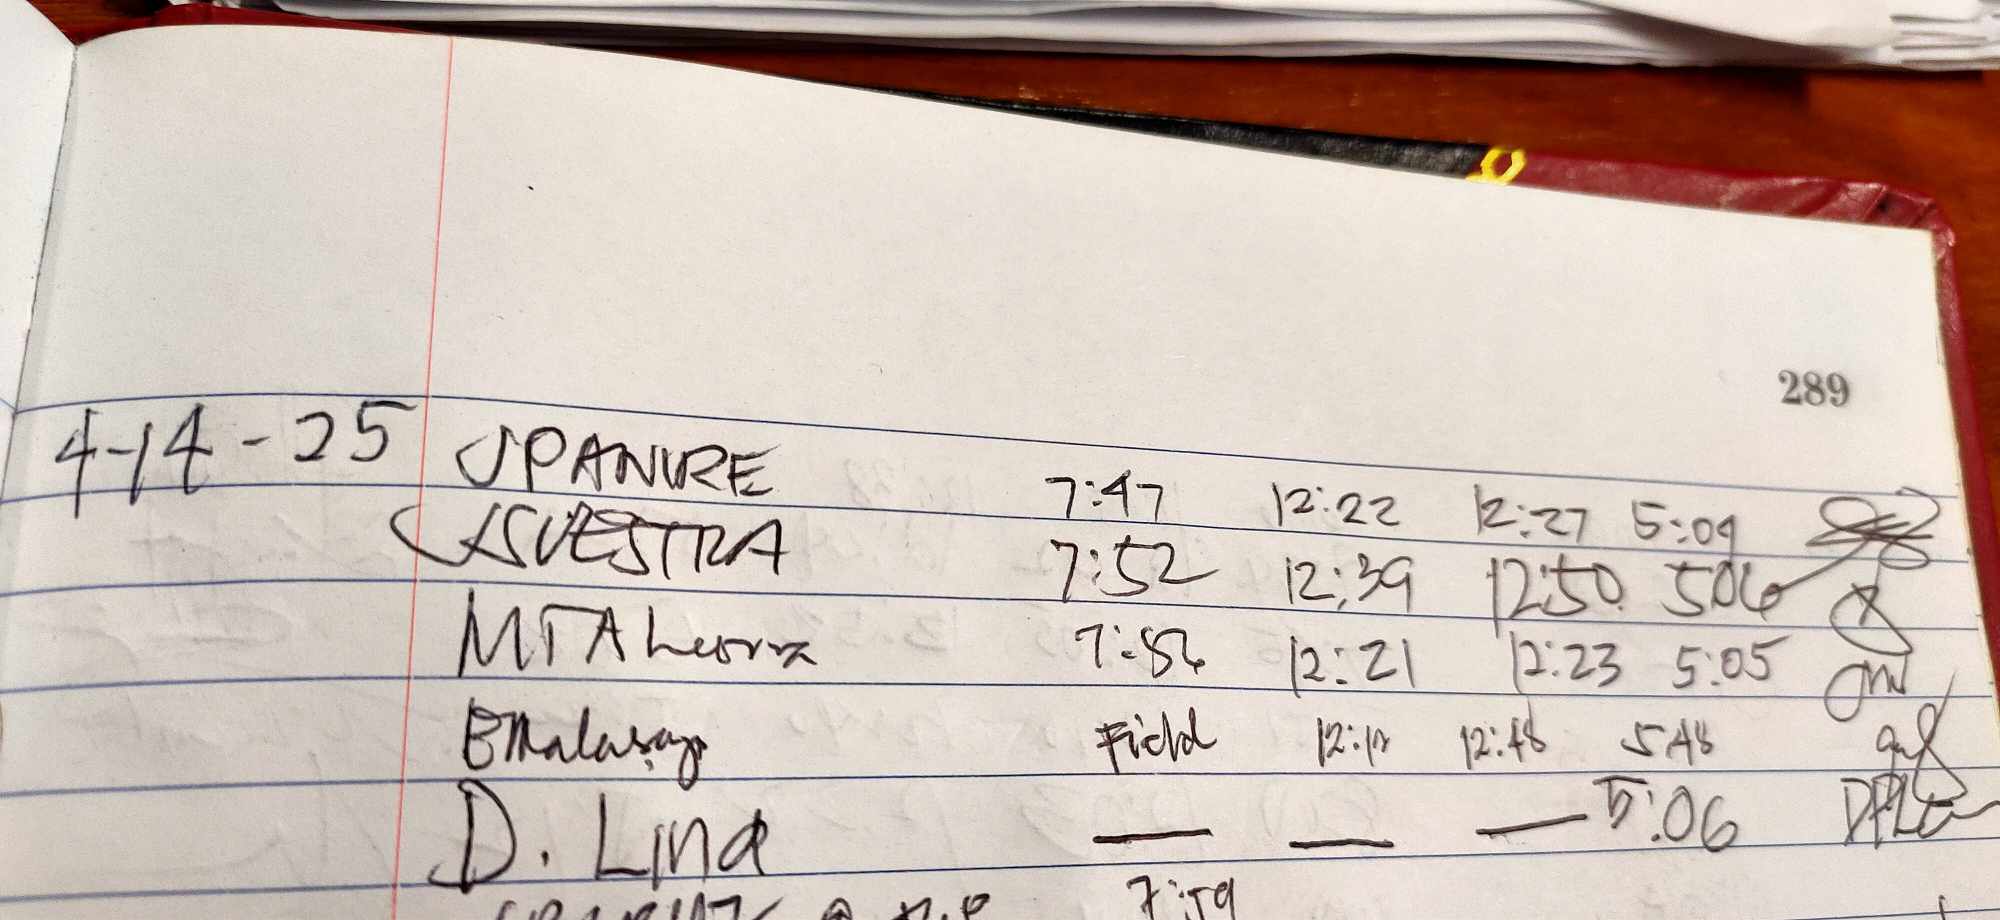 289
4-14-25 JPANURE 7:47 12:22 12:27 5:09
JSVESTRA 7:52 12:39 12:50 506
7:56 12:21 12:23 5:05
EMalasaga Field 12:12 12:48 548
D. Lina — — — 5:06
7:59